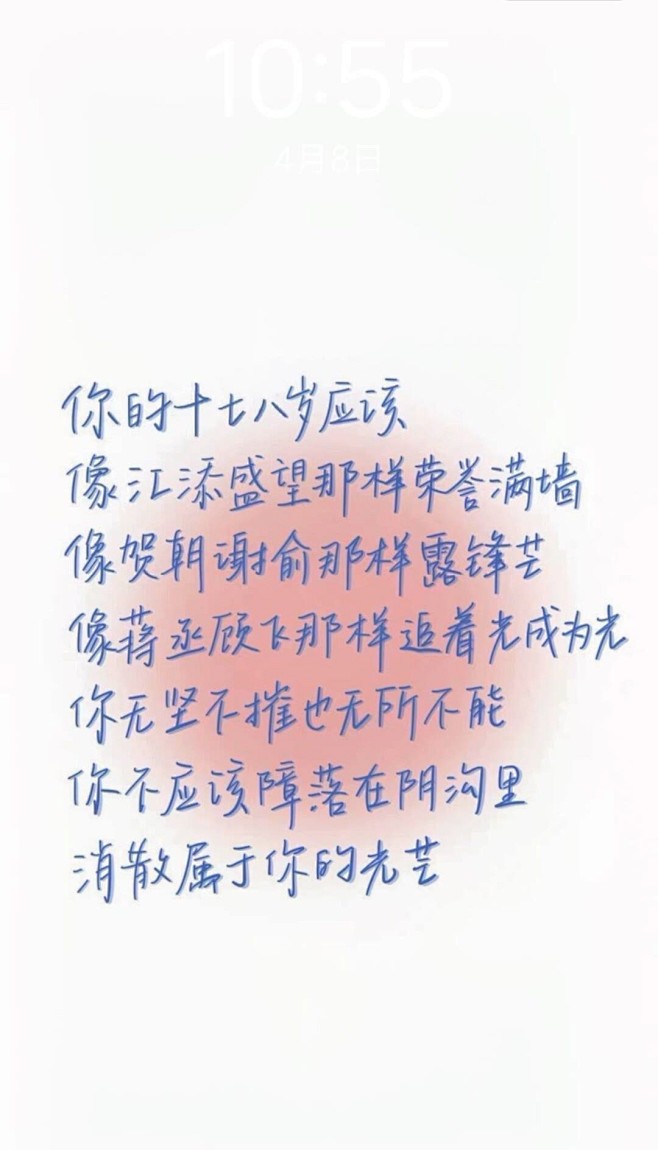 10:55
4月8日
你的十七八岁应该
像江添盛望那样荣誉满墙
像贺朝谢俞那样露锋芒
像蒋丞顾飞那样追着光成为光
你无坚不摧也无所不能
你不应该障落在阴沟里
消散属于你的光芒